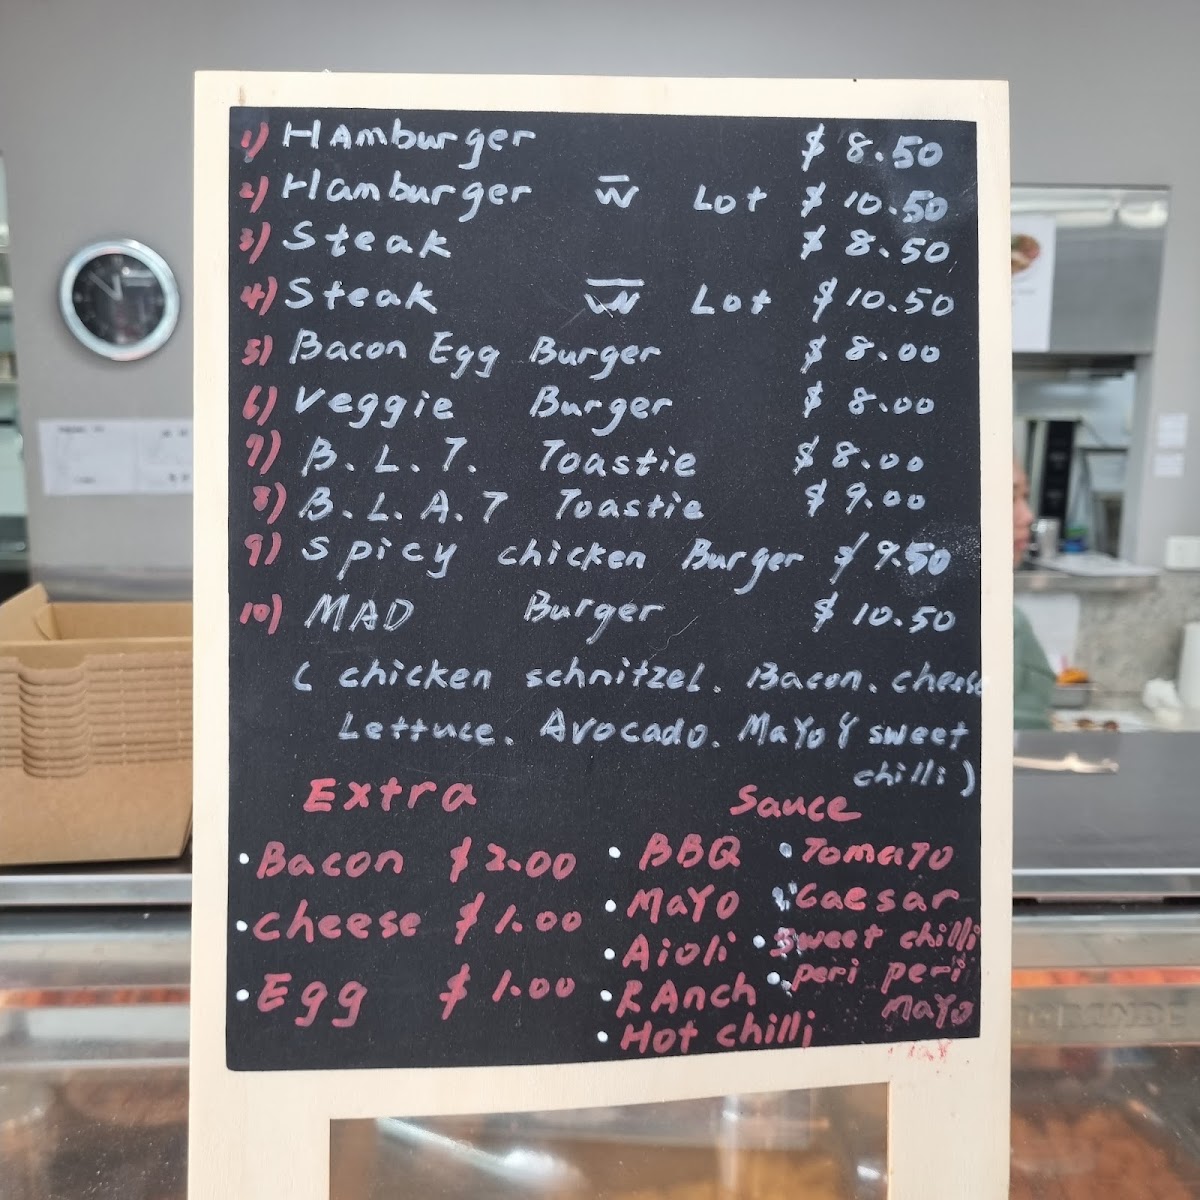 1) Hamburger $ 8.50
2) Hamburger w̅ Lot $ 10.50
3) Steak $ 8.50
4) Steak w̅ Lot $ 10.50
5) Bacon Egg Burger $ 8.00
6) Veggie Burger $ 8.00
7) B.L.T. Toastie $ 8.00
8) B.L.A.T Toastie $ 9.00
9) Spicy chicken Burger $ 9.50
10) MAD Burger $ 10.50
( chicken schnitzel. Bacon. cheese
Lettuce. Avocado. MaYo Y sweet
chilli )
Extra
• Bacon $ 2.00
• cheese $ 1.00
• Egg $ 1.00
Sauce
• BBQ
• MaYo
• Aioli
• RAnch
• Hot chilli
• Tomato
• Caesar
• Sweet chilli
• peri peri
MaYo